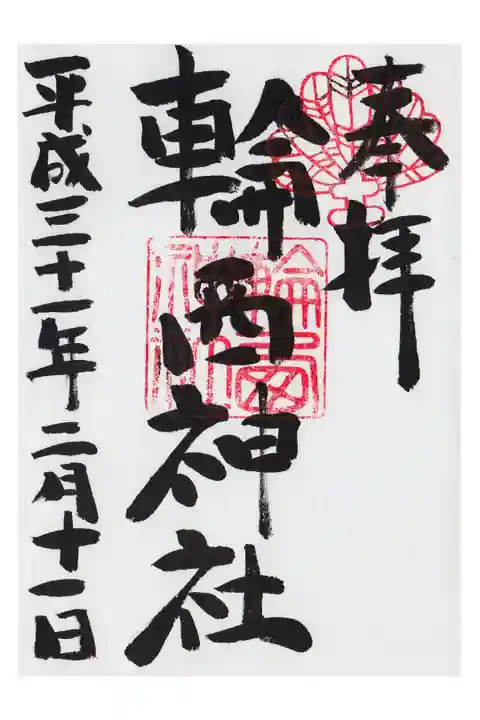 奉拝
輪西神社
平成三十一年二月十一日
輪西神社